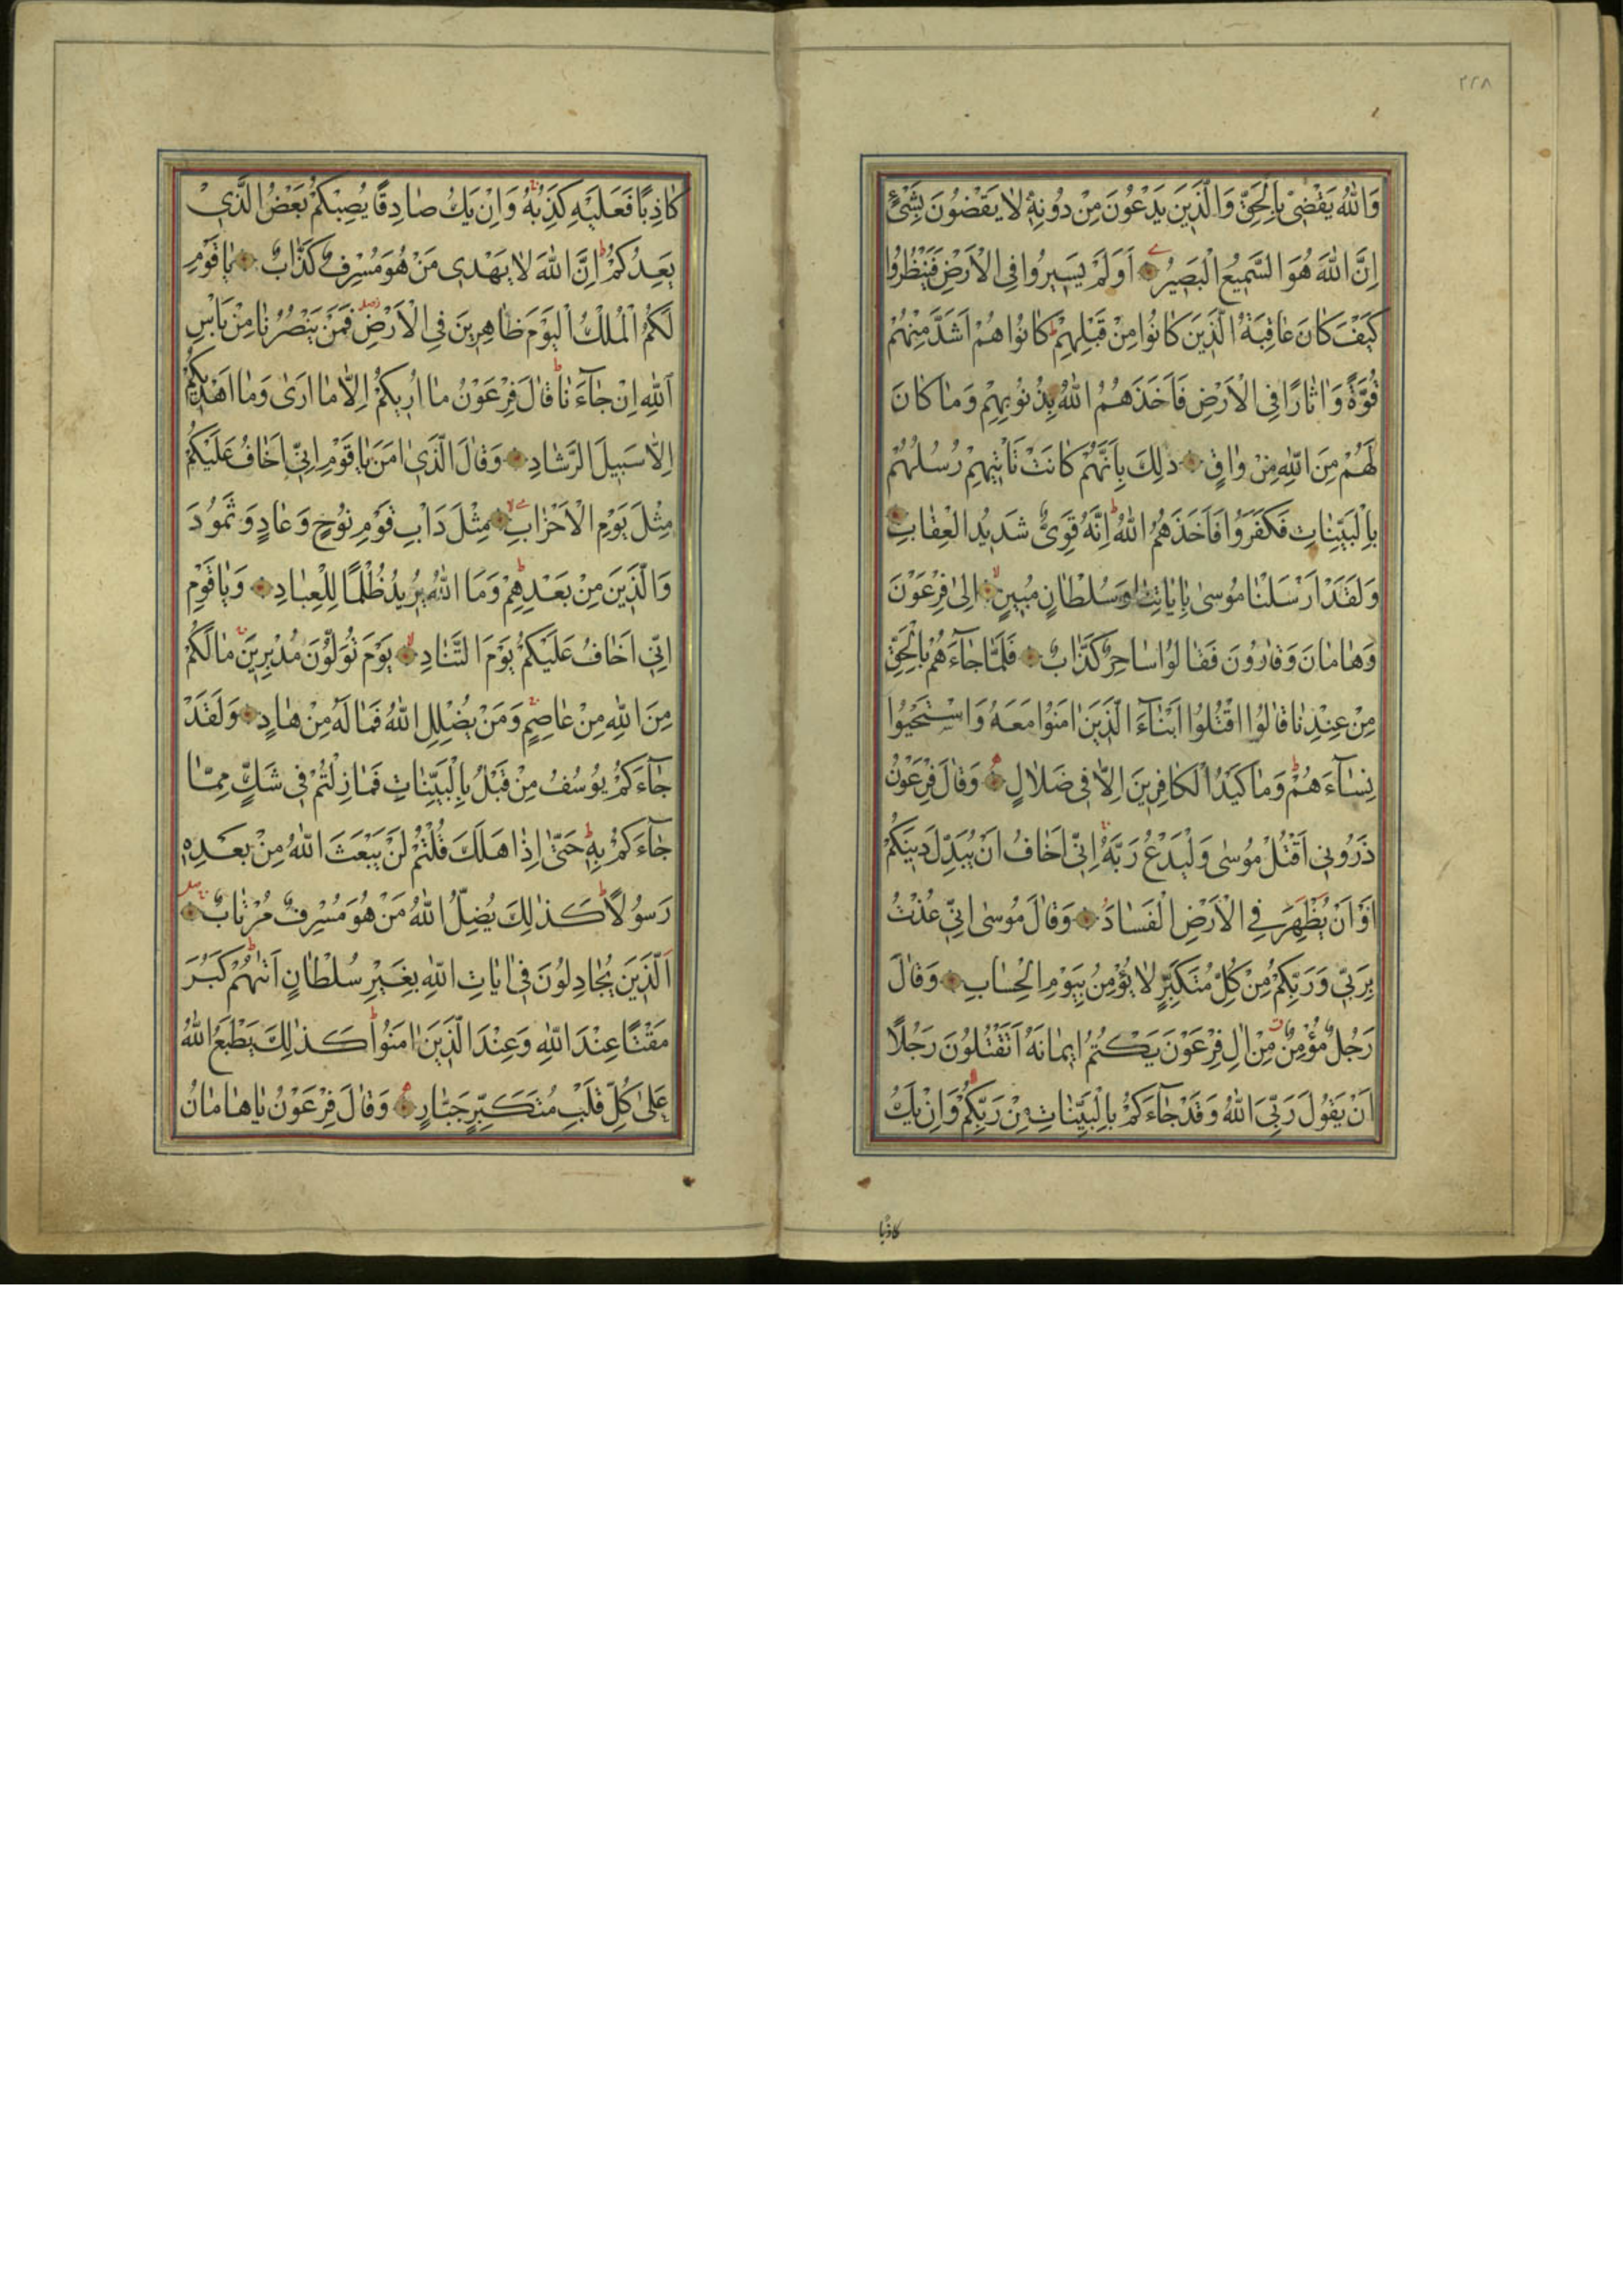 ٢٢٨
وَاللّٰهُ يَقْضِي بِالْحَقِّ وَالَّذِينَ يَدْعُونَ مِنْ دُونِهِ لَا يَقْضُونَ بِشَيْءٍ
اِنَّ اللّٰهَ هُوَ السَّمِيعُ الْبَصِيرُ اَوَلَمْ يَسِيرُوا فِي الْاَرْضِ فَيَنْظُرُوا
كَيْفَ كَانَ عَاقِبَةُ الَّذِينَ كَانُوا مِنْ قَبْلِهِمْ كَانُوا هُمْ اَشَدَّ مِنْهُمْ
قُوَّةً وَاٰثَارًا فِي الْاَرْضِ فَاَخَذَهُمُ اللّٰهُ بِذُنُوبِهِمْ وَمَا كَانَ
لَهُمْ مِنَ اللّٰهِ مِنْ وَاقٍ ذٰلِكَ بِاَنَّهُمْ كَانَتْ تَاْتِيهِمْ رُسُلُهُمْ
بِالْبَيِّنَاتِ فَكَفَرُوا فَاَخَذَهُمُ اللّٰهُ اِنَّهُ قَوِيٌّ شَدِيدُ الْعِقَابِ
وَلَقَدْ اَرْسَلْنَا مُوسٰى بِاٰيَاتِنَا وَسُلْطَانٍ مُبِينٍ اِلٰى فِرْعَوْنَ
وَهَامَانَ وَقَارُونَ فَقَالُوا سَاحِرٌ كَذَّابٌ فَلَمَّا جَاءَهُمْ بِالْحَقِّ
مِنْ عِنْدِنَا قَالُوا اقْتُلُوا اَبْنَاءَ الَّذِينَ اٰمَنُوا مَعَهُ وَاسْتَحْيُوا
نِسَاءَهُمْ وَمَا كَيْدُ الْكَافِرِينَ اِلَّا فِي ضَلَالٍ وَقَالَ فِرْعَوْنُ
ذَرُونِي اَقْتُلْ مُوسٰى وَلْيَدْعُ رَبَّهُ اِنِّي اَخَافُ اَنْ يُبَدِّلَ دِينَكُمْ
اَوْ اَنْ يُظْهِرَ فِي الْاَرْضِ الْفَسَادَ وَقَالَ مُوسٰى اِنِّي عُذْتُ
بِرَبِّي وَرَبِّكُمْ مِنْ كُلِّ مُتَكَبِّرٍ لَا يُؤْمِنُ بِيَوْمِ الْحِسَابِ وَقَالَ
رَجُلٌ مُؤْمِنٌ مِنْ اٰلِ فِرْعَوْنَ يَكْتُمُ اِيمَانَهُ اَتَقْتُلُونَ رَجُلًا
اَنْ يَقُولَ رَبِّيَ اللّٰهُ وَقَدْ جَاءَكُمْ بِالْبَيِّنَاتِ مِنْ رَبِّكُمْ وَاِنْ يَكُ
كَاذِبًا
كَاذِبًا فَعَلَيْهِ كَذِبُهُ وَاِنْ يَكُ صَادِقًا يُصِبْكُمْ بَعْضُ الَّذِي
يَعِدُكُمْ اِنَّ اللّٰهَ لَا يَهْدِي مَنْ هُوَ مُسْرِفٌ كَذَّابٌ يَا قَوْمِ
لَكُمُ الْمُلْكُ الْيَوْمَ ظَاهِرِينَ فِي الْاَرْضِ فَمَنْ يَنْصُرُنَا مِنْ بَاْسِ
اللّٰهِ اِنْ جَاءَنَا قَالَ فِرْعَوْنُ مَا اُرِيكُمْ اِلَّا مَا اَرٰى وَمَا اَهْدِيكُمْ
اِلَّا سَبِيلَ الرَّشَادِ وَقَالَ الَّذِي اٰمَنَ يَا قَوْمِ اِنِّي اَخَافُ عَلَيْكُمْ
مِثْلَ يَوْمِ الْاَحْزَابِ مِثْلَ دَاْبِ قَوْمِ نُوحٍ وَعَادٍ وَثَمُودَ
وَالَّذِينَ مِنْ بَعْدِهِمْ وَمَا اللّٰهُ يُرِيدُ ظُلْمًا لِلْعِبَادِ وَيَا قَوْمِ
اِنِّي اَخَافُ عَلَيْكُمْ يَوْمَ التَّنَادِ يَوْمَ تُوَلُّونَ مُدْبِرِينَ مَا لَكُمْ
مِنَ اللّٰهِ مِنْ عَاصِمٍ وَمَنْ يُضْلِلِ اللّٰهُ فَمَا لَهُ مِنْ هَادٍ وَلَقَدْ
جَاءَكُمْ يُوسُفُ مِنْ قَبْلُ بِالْبَيِّنَاتِ فَمَا زِلْتُمْ فِي شَكٍّ مِمَّا
جَاءَكُمْ بِهِ حَتّٰى اِذَا هَلَكَ قُلْتُمْ لَنْ يَبْعَثَ اللّٰهُ مِنْ بَعْدِهِ
رَسُولًا كَذٰلِكَ يُضِلُّ اللّٰهُ مَنْ هُوَ مُسْرِفٌ مُرْتَابٌ
اَلَّذِينَ يُجَادِلُونَ فِي اٰيَاتِ اللّٰهِ بِغَيْرِ سُلْطَانٍ اَتٰيهُمْ كَبُرَ
مَقْتًا عِنْدَ اللّٰهِ وَعِنْدَ الَّذِينَ اٰمَنُوا كَذٰلِكَ يَطْبَعُ اللّٰهُ
عَلٰى كُلِّ قَلْبِ مُتَكَبِّرٍ جَبَّارٍ وَقَالَ فِرْعَوْنُ يَا هَامَانُ